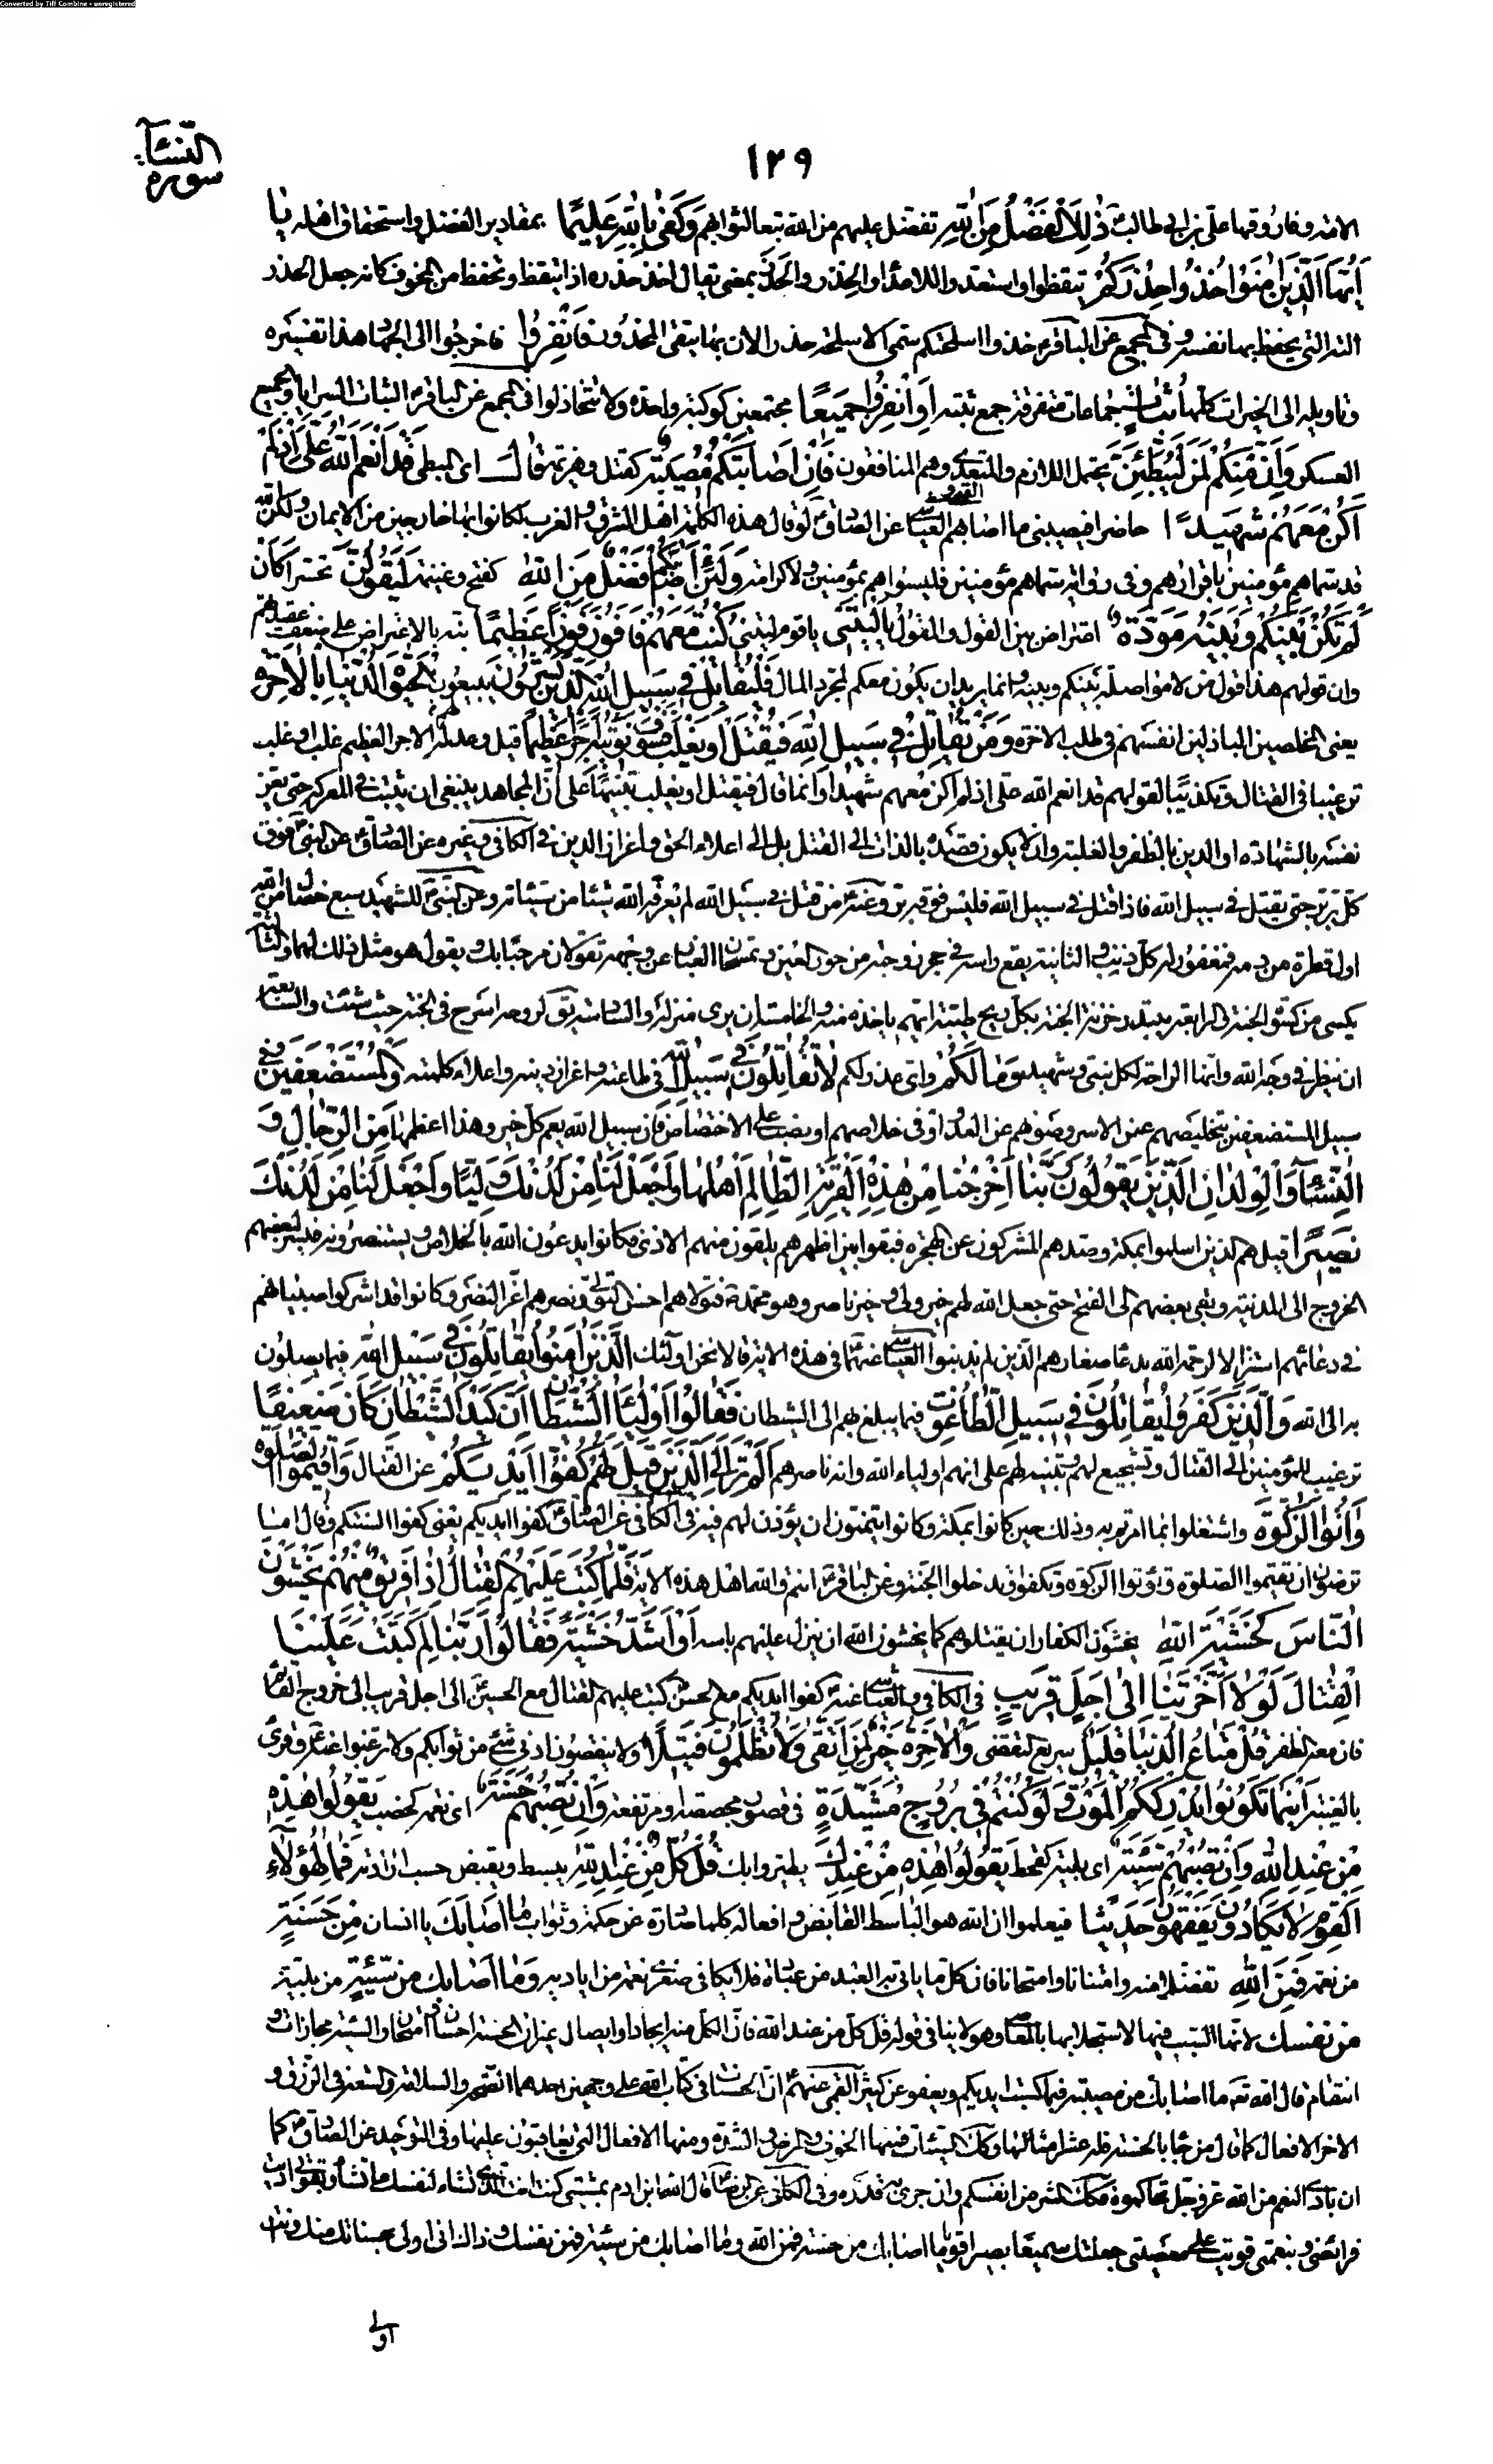 Converted by Tiff Combine - unregistered
سورة النساء
١٢٩
الامة وفاروقها علي بن ابي طالب ذٰلِكَ الْفَضْلُ مِنَ اللّٰهِ تفضل عليهم من الله تبعا لثوابهم وَكَفىٰ بِاللّٰهِ عَلِيمًا بمقادير الفضل واستحقاق اهله يٰا
اَيُّهَا الَّذِينَ اٰمَنُوا خُذُوا حِذْرَكُمْ تيقظوا واستعدوا للاعداء والحِذر والحَذر بمعنى يقال اخذ حذره اذا تيقظ وتحفظ من المخوف كانه جعل الحذر
الته التي يحفظ بها نفسه وفي المجمع عن الباقرع خذوا اسلحتكم سمى الاسلحة حذرا لان بها يتقى المحذور فَانْفِرُوا فاخرجوا الى الجهاد هذا تفسيره
وتاويله الى الخيرات كلها ثُبٰاتٍ جماعات متفرقة جمع ثبة اَوِ انْفِرُوا جَمِيعًا مجتمعين كوكبة واحدة ولا تتخاذلوا في المجمع عن الباقرع الثبات السرايا والجميع
العسكر وَاِنَّ مِنْكُمْ لَمَنْ لَيُبَطِّئَنَّ يحتمل اللازم والمتعدي وهم المنافقون فَاِنْ اَصٰابَتْكُمْ مُصِيبَةٌ كقتل وهزيمة قٰالَ اى المبطئ قَدْ اَنْعَمَ اللّٰهُ عَلَيَّ اِذْ لَمْ
اَكُنْ مَعَهُمْ شَهِيدًا حاضرا فيصيبني ما اصابهم القمي والعياشي عن الصادق ع لو قال هذه الكلمة اهل الشرق والغرب لكانوا بها خارجين من الايمان ولكن الله
قد سماهم مؤمنين باقرارهم وفي رواية سماهم مؤمنين وليسوا هم بمؤمنين ولا كرامة وَلَئِنْ اَصٰابَكُمْ فَضْلٌ مِنَ اللّٰهِ كفتح وغنيمة لَيَقُولَنَّ تحسرا كَاَنْ
لَمْ تَكُنْ بَيْنَكُمْ وَبَيْنَهُ مَوَدَّةٌ اعتراض بين القول والمقول يٰا لَيْتَنِي يا قوم ليتني كُنْتُ مَعَهُمْ فَاَفُوزَ فَوْزًا عَظِيمًا نبه بالاعتراض على ضعف عقيدتهم
وان قولهم هذا قول من لا مواصلة بينكم وبينه وانما يريد ان يكون معكم لمجرد المال فَلْيُقٰاتِلْ فِي سَبِيلِ اللّٰهِ الَّذِينَ يَشْرُونَ يبيعون الْحَيٰوةَ الدُّنْيٰا بِالْاٰخِرَةِ
يعني المخلصين الباذلين انفسهم في طلب الاخرة وَمَنْ يُقٰاتِلْ فِي سَبِيلِ اللّٰهِ فَيُقْتَلْ اَوْ يَغْلِبْ فَسَوْفَ نُؤْتِيهِ اَجْرًا عَظِيمًا قيل وعد له الاجر العظيم غلب او غلب
ترغيبا في القتال وتكذيبا لقولهم قد انعم الله علي اذ لم اكن معهم شهيدا وانما قال فيقتل او يغلب تنبيها على ان المجاهد ينبغي ان يثبت في المعركة حتى يعز
نفسه بالشهادة او الدين بالظفر والغلبة وان لا يكون قصده بالذات الى القتل بل الى اعلاء الحق واعزاز الدين في الكافي وغيره عن الصادق ع عن النبي ص فوق
كل بر بر حتى يقتل في سبيل الله فاذا قتل في سبيل الله فليس فوقه بر وعنه ع من قتل في سبيل الله لم يعرفه الله شيئا من سيئاته وعن النبي ص للشهيد سبع خصال من الله
اول قطرة من دمه مغفور له كل ذنب والثانية يقع راسه في حجر زوجتيه من حور العين وتمسحان الغبار عن وجهه تقولان مرحبا بك ويقول هو مثل ذلك لهما والثالثة
يكسى من كسوة الجنة والرابعة يبتدره خزنة الجنة بكل ريح طيبة ايهم ياخذه منه والخامسة ان يرى منزله والسادسة يقال لروحه اسرح في الجنة حيث شئت والسابعة
ان ينظر في وجه الله وانها الراحة لكل نبي وشهيد وَمٰا لَكُمْ واى عذر لكم لٰا تُقٰاتِلُونَ فِي سَبِيلِ اللّٰهِ في طاعته واعزاز دينه واعلاء كلمته وَالْمُسْتَضْعَفِينَ وفي
سبيل المستضعفين بتخليصهم عن الاسر وصونهم عن العدو او في خلاصهم او نصب على الاختصاص فان سبيل الله يعم كل خير وهذا اعظمها مِنَ الرِّجٰالِ وَ
النِّسٰاءِ وَالْوِلْدٰانِ الَّذِينَ يَقُولُونَ رَبَّنٰا اَخْرِجْنٰا مِنْ هٰذِهِ الْقَرْيَةِ الظّٰالِمِ اَهْلُهٰا وَاجْعَلْ لَنٰا مِنْ لَدُنْكَ وَلِيًّا وَاجْعَلْ لَنٰا مِنْ لَدُنْكَ
نَصِيرًا قيل هم الذين اسلموا بمكة وصدهم المشركون عن الهجرة فبقوا بين اظهرهم يلقون منهم الاذى فكانوا يدعون الله بالخلاص ويستنصرونه فيسر لبعضهم
الخروج الى المدينة وبقى بعضهم الى الفتح حتى جعل الله لهم خير ولي وخير ناصر وهو محمد ص فتولاهم احسن التولي ونصرهم اعز النصر وكانوا قد اشركوا صبيانهم
في دعائهم استنزالا لرحمة الله بدعاء صغارهم الذين لم يذنبوا العياشي عنهما في هذه الاية قالا نحن اولئك الَّذِينَ اٰمَنُوا يُقٰاتِلُونَ فِي سَبِيلِ اللّٰهِ فيما يصلون
به الى الله وَالَّذِينَ كَفَرُوا يُقٰاتِلُونَ فِي سَبِيلِ الطّٰاغُوتِ فيما يبلغ بهم الى الشيطان فَقٰاتِلُوا اَوْلِيٰاءَ الشَّيْطٰانِ اِنَّ كَيْدَ الشَّيْطٰانِ كٰانَ ضَعِيفًا
ترغيب للمؤمنين الى القتال وتشجيع لهم وتنبيه لهم على انهم اولياء الله وانه ناصرهم اَلَمْ تَرَ اِلَى الَّذِينَ قِيلَ لَهُمْ كُفُّوا اَيْدِيَكُمْ عن القتال وَاَقِيمُوا الصَّلٰوةَ
وَاٰتُوا الزَّكٰوةَ واشتغلوا بما امرتم به وذلك حين كانوا بمكة وكانوا يتمنون ان يؤذن لهم فيه في الكافي عن الصادق ع كفوا ايديكم يعني كفوا السنتكم وقال اما
ترضون ان تقيموا الصلوة وتؤتوا الزكوة وتكفوا وتدخلوا الجنة وعن الباقر ع انتم والله اهل هذه الاية فَلَمّٰا كُتِبَ عَلَيْهِمُ الْقِتٰالُ اِذٰا فَرِيقٌ مِنْهُمْ يَخْشَوْنَ
النّٰاسَ كَخَشْيَةِ اللّٰهِ يخشون الكفار ان يقتلوهم كما يخشون الله ان ينزل عليهم باسه اَوْ اَشَدَّ خَشْيَةً وَقٰالُوا رَبَّنٰا لِمَ كَتَبْتَ عَلَيْنَا
الْقِتٰالَ لَوْلٰا اَخَّرْتَنٰا اِلىٰ اَجَلٍ قَرِيبٍ في الكافي والعياشي عنه ع كفوا ايديكم مع الحسن ع كتب عليهم القتال مع الحسين ع الى اجل قريب الى خروج القائم ع
فان معه الظفر قُلْ مَتٰاعُ الدُّنْيٰا قَلِيلٌ سريع التقضي وَالْاٰخِرَةُ خَيْرٌ لِمَنِ اتَّقىٰ وَلٰا تُظْلَمُونَ فَتِيلًا ولا ينقصون ادنى شئ من ثوابكم ولا ترغبوا عنه وقرئ
بالغيبة اَيْنَمٰا تَكُونُوا يُدْرِكْكُمُ الْمَوْتُ وَلَوْ كُنْتُمْ فِي بُرُوجٍ مُشَيَّدَةٍ في قصور مجصصة او مرتفعة وَاِنْ تُصِبْهُمْ حَسَنَةٌ اى نعمة كخصب يَقُولُوا هٰذِهِ
مِنْ عِنْدِ اللّٰهِ وَاِنْ تُصِبْهُمْ سَيِّئَةٌ اى بلية كقحط يَقُولُوا هٰذِهِ مِنْ عِنْدِكَ يطيروا بك قُلْ كُلٌّ مِنْ عِنْدِ اللّٰهِ يبسط ويقبض حسب ارادته فَمٰا لِهٰؤُلٰاءِ
الْقَوْمِ لٰا يَكٰادُونَ يَفْقَهُونَ حَدِيثًا فيعلموا ان الله هو الباسط القابض وافعاله كلها صادرة عن حكمة وثواب مٰا اَصٰابَكَ يا انسان مِنْ حَسَنَةٍ
من نعمة فَمِنَ اللّٰهِ تفضلا منه وامتنانا وامتحانا فان كل ما ياتي به العبد من عبادة فلا يكافي صغرى نعمة من اياديه وَمٰا اَصٰابَكَ مِنْ سَيِّئَةٍ من بلية
فَمِنْ نَفْسِكَ لانها السبب فيها لاستجلابها بالمعاصي وهو لا ينافي قوله قل كل من عند الله فان الكل منه ايجادا وايصالا غير ان الحسنة احسان وامتحان والسيئة مجازات و
انتقام قال الله تعالى ما اصابك من مصيبة فبما كسبت ايديكم ويعفو عن كثير القمي عنهم ع ان الحسنات في كتاب الله على وجهين احدهما الصحة والسلامة والسعة في الرزق و
الاخر الافعال كما قال من جاء بالحسنة فله عشر امثالها وكذلك السيئات فمنها الخوف والمرض والشدة ومنها الافعال التي يعاقبون عليها وفي التوحيد عن الصادق ع كما
ان بادئ النعم من الله عز وجل نحلكموه فكذلك الشر من انفسكم وان جرى به قدره وفي الكافي عن الرضا ع قال الله ابن ادم بمشيتي كنت انت الذي تشاء لنفسك ما تشاء وبقوتي اديت
فرائضي وبنعمتي قويت على معصيتي جعلتك سميعا بصيرا قويا ما اصابك من حسنة فمن الله وما اصابك من سيئة فمن نفسك وذاك اني اولى بحسناتك منك وانت
اولى